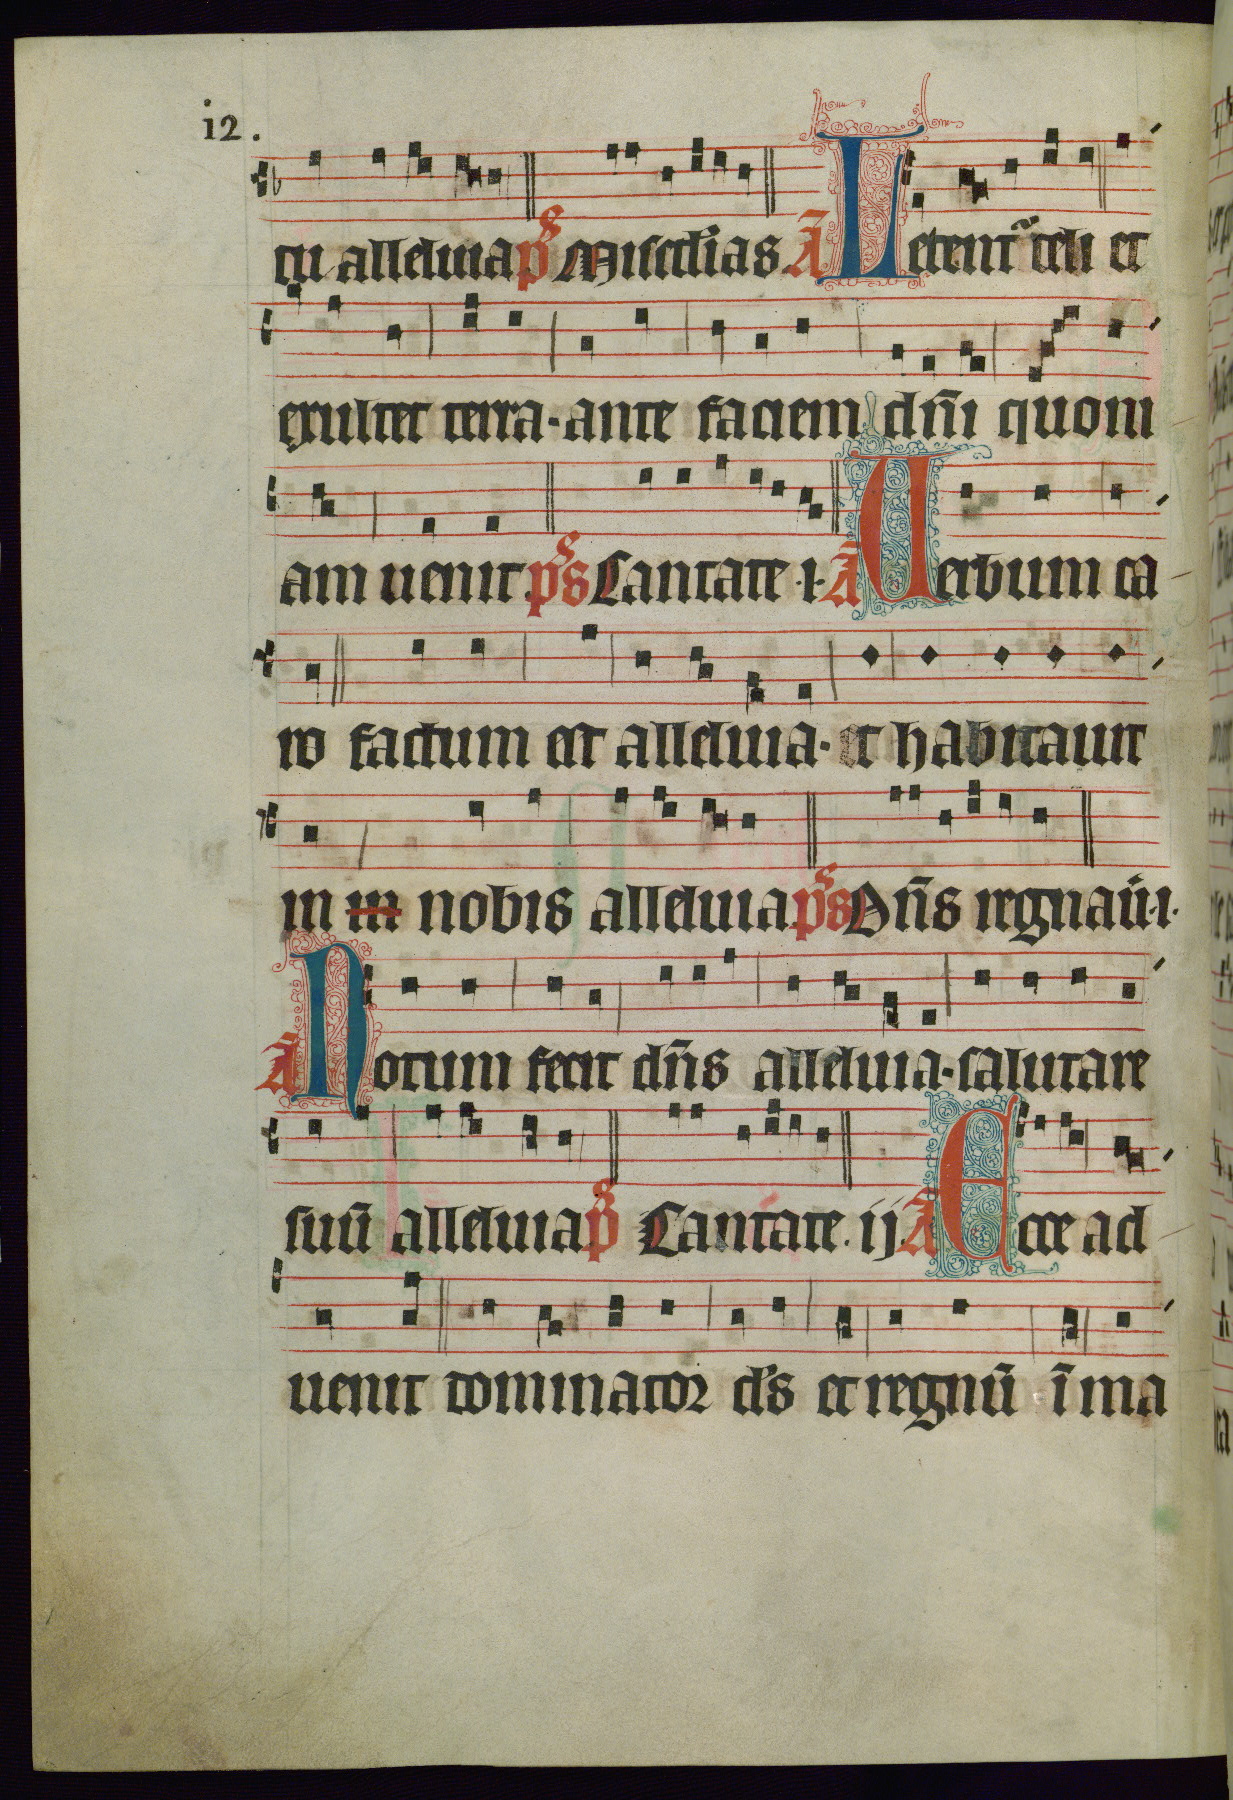 i2.
cu alleluia ps̄ Misedīas Ā Letent᷑ celi et
exultet terra·ante faciem dn̄i quoni
am uenit ps̄ Cantate·i·Ā Uerbum ca
ro factum est alleluia·et habitauit
in in nobis alleluia ps̄ Dn̄s regnaū·i·
Ā Notum fecit dn̄s alleluia·salutare
suū alleluia ps̄ Cantate.ij.Ā Ecce ad
uenit dominator ds̄ et regnū ī ma